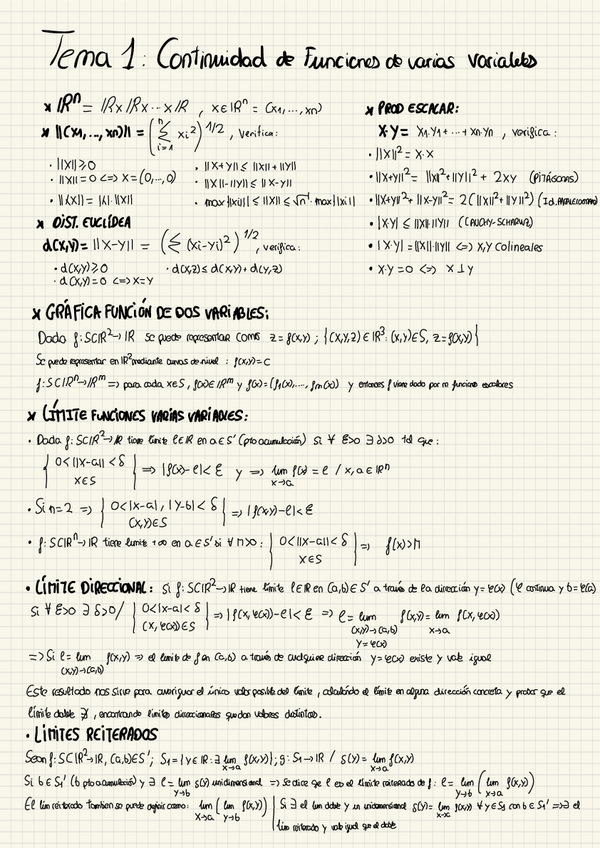 Tema 1: Continuidad de Funciones de varias variables
* IRⁿ = IR x IR x ··· x IR , x ∈ IRⁿ = (x1, ..., xn)
* ||(x1,..., xn)|| = (∑ i=1 n xi²)^1/2 , verifica:
· ||x|| ≥ 0
· ||x|| = 0 <=> x = (0,...,0)
· ||λx|| = |λ|·||x||
· ||x+y|| ≤ ||x||+||y||
· ||x||-||y|| ≤ ||x-y||
· max{|xi|} ≤ ||x|| ≤ √n · max{|xi|}
* DIST. EUCLÍDEA
d(x,y) = ||x-y|| = (∑ (xi-yi)²)^1/2 , verifica:
· d(x,y) ≥ 0
· d(x,y) = 0 <=> x=y
· d(x,y) ≤ d(x,y) + d(y,z)
* PROD ESCALAR:
x·y = x1·y1 + ··· + xn·yn , verifica:
· ||x||² = x·x
· ||x+y||² = ||x||²+||y||² + 2xy (PITÁGORAS)
· ||x+y||² + ||x-y||² = 2(||x||²+||y||²) (Id. PARALELOGRAMO)
· |x·y| ≤ ||x||·||y|| (CAUCHY-SCHARWZ)
· |x·y| = ||x||·||y|| <=> x,y colineales
· x·y = 0 <=> x ⊥ y
* GRÁFICA FUNCIÓN DE DOS VARIABLES:
Dada f: S⊂IR² → IR se puede representar como z = f(x,y) ; {(x,y,z) ∈ IR³ : (x,y)∈S, z=f(x,y)}
Se puede representar en IR² mediante curvas de nivel : f(x,y)=c
f: S⊂IRⁿ→IRᵐ => para cada x∈S, f(x)∈IRᵐ y f(x)=(f1(x),..., fm(x)) y entonces f viene dado por m funciones escalares
* LÍMITE FUNCIONES VARIAS VARIABLES:
· Dada f: S⊂IR²→IR tiene límite l∈IR en a∈S' (pto acumulación) si ∀ ε>0 ∃ δ>0 tal que:
{ 0<||x-a||<δ
x∈S } => |f(x)-l|<ε y => lim x→a f(x) = l / x, a ∈ IRⁿ
· Si n=2 => { 0<|x-a|, |y-b|<δ
(x,y)∈S } => |f(x,y)-l|<ε
· f: S⊂IRⁿ→IR tiene límite +∞ en a∈S' si ∀ M>0 : { 0<||x-a||<δ
x∈S } => f(x)>M
· LÍMITE DIRECCIONAL: Si f: S⊂IR²→IR tiene límite l∈IR en (a,b)∈S' a través de la dirección y=φ(x) (φ continua y b=φ(a))
Si ∀ ε>0 ∃ δ>0 / { 0<|x-a|<δ
(x, φ(x))∈S } => |f(x, φ(x))-l|<ε => l = lim (x,y)→(a,b) y=φ(x) f(x,y) = lim x→a f(x, φ(x))
=> Si l = lim (x,y)→(a,b) f(x,y) => el límite de f en (a,b) a través de cualquier dirección y=φ(x) existe y vale igual
Este resultado nos sirve para averiguar el único valor posible del límite, calculando el límite en alguna dirección concreta y probar que el
límite doble ∄, encontrando límites direccionales que dan valores distintos.
· LÍMITES REITERADOS
Sean f: S⊂IR²→IR, (a,b)∈S' ; S1 = {y∈IR : ∃ lim x→a f(x,y)} ; g: S1→IR / g(y) = lim x→a f(x,y)
Si b∈S1' (b pto acumulación) y ∃ l = lim y→b g(y) unidimensional => Se dice que l es el límite reiterado de f : l = lim y→b (lim x→a f(x,y))
El lim reiterado también se puede definir como: lim x→a (lim y→b f(x,y))
Si ∃ el lim doble y un unidimensional g(y) = lim x→a f(x,y) ∀ y∈S1 con b∈S1' => ∃ el
lim reiterado y vale igual que el doble